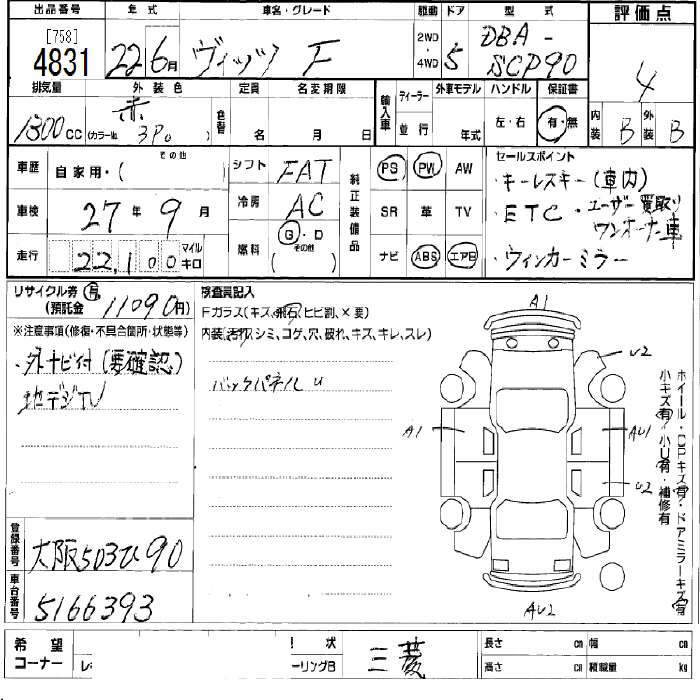 出品番号 年式 車名・グレード 駆動 ドア 型式 評価点
[758]
4831 22年6月 ヴィッツ F 2WD・4WD 5 DBA-SCP90 4
排気量 外装色 色替 定員 名変期限 輸入車 ディーラー 外車モデル ハンドル 保証書 内装 外装
1300cc 赤 (カラーNo. 3P0) 名 月 日 並行 年式 左・右 有・無 B B
車歴 自家用・( その他 シフト FAT 純正装備品 PS PW AW セールスポイント
・キーレスキー(車内)
車検 27年9月 冷房 AC SR 革 TV ・ETC・ユーザー買取り
ワンオーナー車
走行 22,100 マイル キロ 燃料 G・D (その他) ナビ ABS エアB ・ウィンカーミラー
リサイクル券 有
(預託金 11090円)
※注意事項(修復・不具合箇所・状態等)
・外ナビ付(要確認)
地デジTV
検査員記入
Fガラス(キズ、飛石、ヒビ割、×要)
内装(汚れ、シミ、コゲ、穴、破れ、キズ、キレ、スレ)
バックパネルU
A1
U2
A1
AU1
U2
AU2
ホイール・CPキズ有・ドアミラーキズ有
小キズ有・小U有・補修有
登録番号 大阪503ひ90
車台番号 5166393
希望コーナー 状 三菱 長さ cm 幅 cm
ーリングB 高さ cm 積載量 kg